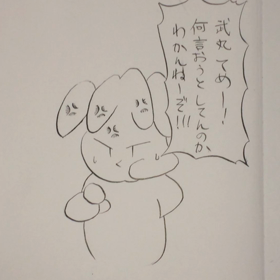 武丸てめー!
何言おうとしてんのか
わかんねーぞ!!!